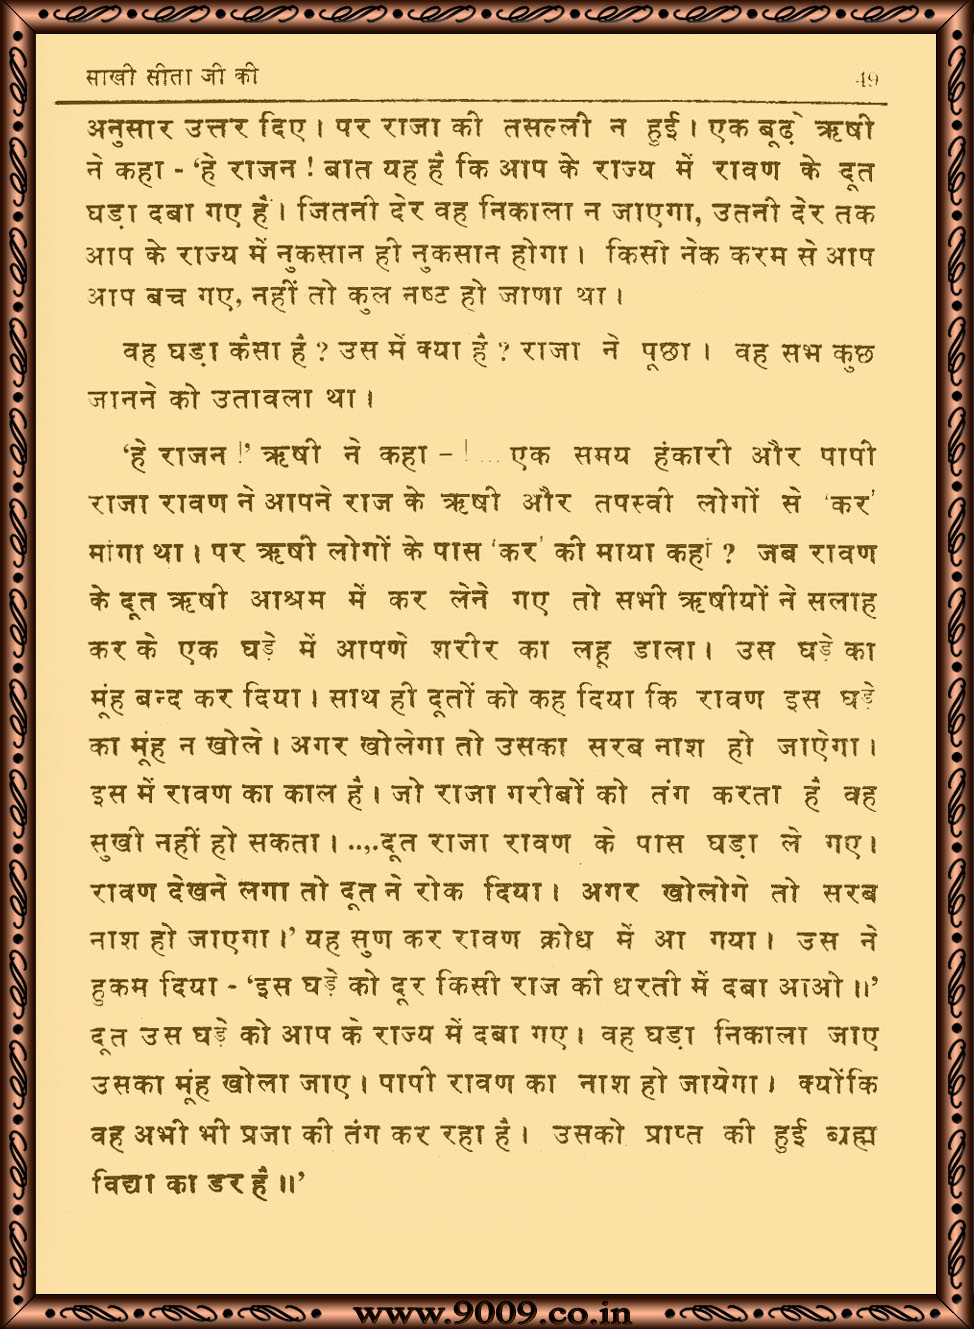 साखी सीता जी की 49
अनुसार उत्तर दिए। पर राजा की तसल्ली न हुई। एक बूढ़े ऋषी
ने कहा - ‘हे राजन ! बात यह है कि आप के राज्य में रावण के दूत
घड़ा दबा गए हैं। जितनी देर वह निकाला न जाएगा, उतनी देर तक
आप के राज्य में नुकसान ही नुकसान होगा। किसी नेक करम से आप
आप बच गए, नहीं तो कुल नष्ट हो जाणा था।
वह घड़ा कैसा है ? उस में क्या है ? राजा ने पूछा। वह सभ कुछ
जानने को उतावला था।
‘हे राजन !’ ऋषी ने कहा – ! ... एक समय हंकारी और पापी
राजा रावण ने आपने राज के ऋषी और तपस्वी लोगों से ‘कर’
मांगा था। पर ऋषी लोगों के पास ‘कर’ की माया कहां ? जब रावण
के दूत ऋषी आश्रम में कर लेने गए तो सभी ऋषीयों ने सलाह
कर के एक घड़े में आपणे शरीर का लहू डाला। उस घड़े का
मूंह बन्द कर दिया। साथ ही दूतों को कह दिया कि रावण इस घड़े
का मूंह न खोले। अगर खोलेगा तो उसका सरब नाश हो जाऐगा।
इस में रावण का काल है। जो राजा गरीबों को तंग करता है वह
सुखी नहीं हो सकता। ..,.दूत राजा रावण के पास घड़ा ले गए।
रावण देखने लगा तो दूत ने रोक दिया। अगर खोलोगे तो सरब
नाश हो जाएगा।’ यह सुण कर रावण क्रोध में आ गया। उस ने
हुकम दिया - ‘इस घड़े को दूर किसी राज की धरती में दबा आओ॥’
दूत उस घड़े को आप के राज्य में दबा गए। वह घड़ा निकाला जाए
उसका मूंह खोला जाए। पापी रावण का नाश हो जायेगा। क्योंकि
वह अभी भी प्रजा की तंग कर रहा है। उसको प्राप्त की हुई ब्रह्म
विद्या का डर है॥’
www.9009.co.in